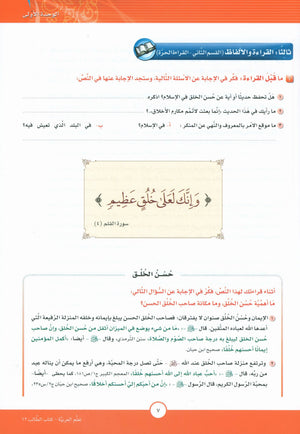 الوحدة الأولى
ثالثًا: القراءة والألفاظ (القسم الثاني - القراءة الحرة)
ما قبل القراءة: فكّر في الإجابة عن الأسئلة التالية، وستجد الإجابة عنها في النص.
هل تحفظ حديثًا أو آية عن حسن الخلق في الإسلام؟ اذكره.
ما رأيك في هذا الحديث: إنما بعثت لأتمم مكارم الأخلاق؟
ما موقع الأمر بالمعروف والنهي عن المنكر: أ- في الإسلام؟ ب- في البلد الذي تعيش فيه؟
﴿ وَإِنَّكَ لَعَلَىٰ خُلُقٍ عَظِيمٍ ﴾
سورة القلم (٤)
حُسْنُ الخُلُق
أثناء قراءتك لهذا النص، فكّر في الإجابة عن السؤال التالي:
ما أهمية حسن الخلق، وما مكانة صاحب الخلق الحسن؟
الإيمان وحسن الخلق صنوان لا يفترقان، فصاحب حسن الخلق يبلغ بإيمانه وخلقه المنزلة الرفيعة التي
أعدها الله لعباده المتقين. قال ﷺ: «ما من شيء يوضع في الميزان أثقل من حسن الخلق، وإن صاحب
حسن الخلق ليبلغ به درجة صاحب الصوم والصلاة»، سنن الترمذي، وقال ﷺ أيضًا: «أكمل المؤمنين
إيمانًا أحسنهم خلقًا»، صحيح ابن حبان.
وترتفع منزلة صاحب حسن الخلق عند الله ... حتى تصل درجة المحبة، وهي أرفع ما يمكن أن يناله عبد
من ربه. قال ﷺ: «أحب عباد الله إلى الله أحسنهم خلقًا»، المعجم الكبير، كما يحظى
بمحبة الرسول الكريم، قال الرسول ﷺ: «إن من أحبكم إلي أحسنكم أخلاقًا»، صحيح ابن حبان
٧
تعلم العربية - كتاب الطالب ١٢